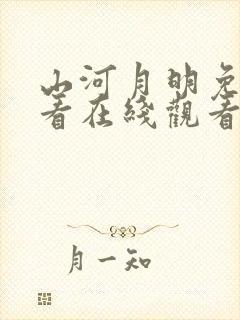 山河月明免
看在线觀看
月一知